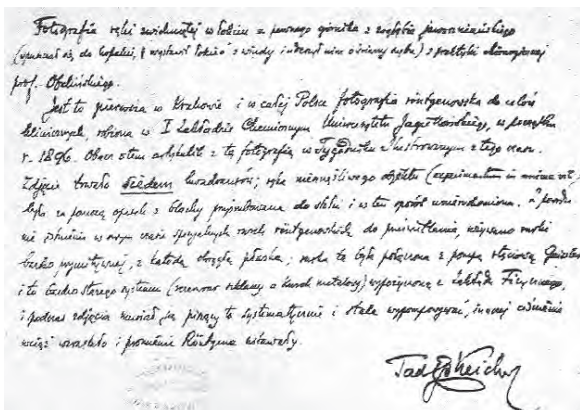 Fotografia ręki zwichniętej w łokciu u pewnego górnika z zagłębia jaworznickiego
(spuszczał się do kopalni, wystawił łokieć z windy i uderzył nim o ścianę szybu) z praktyki chirurgicznej
prof. Obalińskiego.
Jest to pierwsza w Krakowie i w całej Polsce fotografia röntgenowska do celów
klinicznych, robiona w I Zakładzie Chemicznym Uniwersytetu Jagiellońskiego, w początku
r. 1896. Obacz o tem artykulik z tą fotografią w Tygodniku Ilustrowanym z tego czasu.
Zdjęcie trwało siedem kwadransów; ręka nieszczęśliwego objektu (experimentum in anima vili)
była za pomocą opasek z blachy przymocowana do stołu i w ten sposób unieruchomiona.
nie istniały w owym czasie specjalnych rurek röntgenowskich do prześwietlania, używano rurki
bardzo prymitywnej, z katodą okrągłą płaską; rurka ta była połączona z pompą rtęciową Geisslera
i to bardzo starego systemu (rezerwoar szklany a kurek metalowy) wypożyczoną z Zakładu Fizycznego,
i podczas zdjęcia musiał ją piszący to systematycznie i stale wypompowywać, inaczej ciśnienie
wciąż wzrastało i promienie Röntgena ustawały.
Tad Estreicher